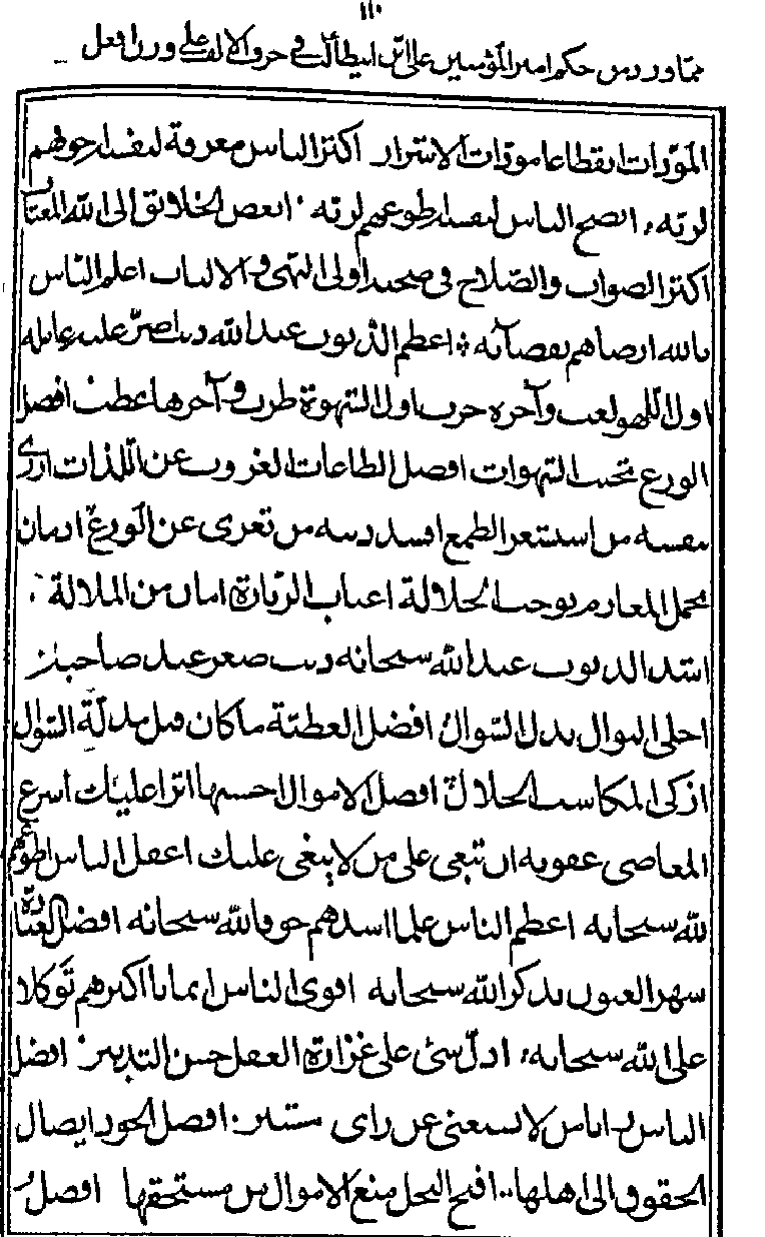 ١١٠
ممّا ورد من حكم امير المؤمنين علي ابن ابيطالب في حرف الالف علي وزن افعل
المودّات انقطاعا مودّات الاشرار اكثر الناس معرفة لنفسه اخوفهم
لربّه، انصح الناس لنفسه اطوعهم لربّه ابغض الخلائق الى الله المغتاب
اكثر الصواب والصّلاح في صحبة اولى النهى والالباب اعلم النّاس
بالله ارضاهم بقضآئه اعظم الذنوب عند الله ذنب اصرّ عليه عامله
اول اللهو لعب وآخره حرب اول الشهوة طرب وآخرها عطب افضل
الورع تجنب الشهوات افضل الطاعات العزوب عن اللّذات ازرى
بنفسه من استشعر الطمع افسد دينه من تعرى عن الورع ادمان
تحمل المغارم يوجب الجلالة اغباب الزّيارة امان من الملالة
اشد الذنوب عند الله سبحانه ذنب صغر عند صاحبه
احلى النوال بذل السّوال افضل العطيّة ما كان قبل مذلّة السّوال
ازكى المكاسب الحلال افضل الاموال احسنها اثرا عليك اسرع
المعاصى عقوبة ان تبغى على من لا يبغى عليك اعقل الناس اطوعهم
للّه سبحانه اعظم الناس علما اشدهم خوفا لله سبحانه افضل العبّادة
سهر العيون بذكر الله سبحانه اقوى الناس ايمانا اكثرهم توكلا
على الله سبحانه، ادلّ شئ على غزارة العقل حسن التدبير افضل
الناس رايا من لا يستغنى عن راى مشير افضل الجود ايصال
الحقوق الى اهلها اقبح البخل منع الاموال من مستحقها افضل